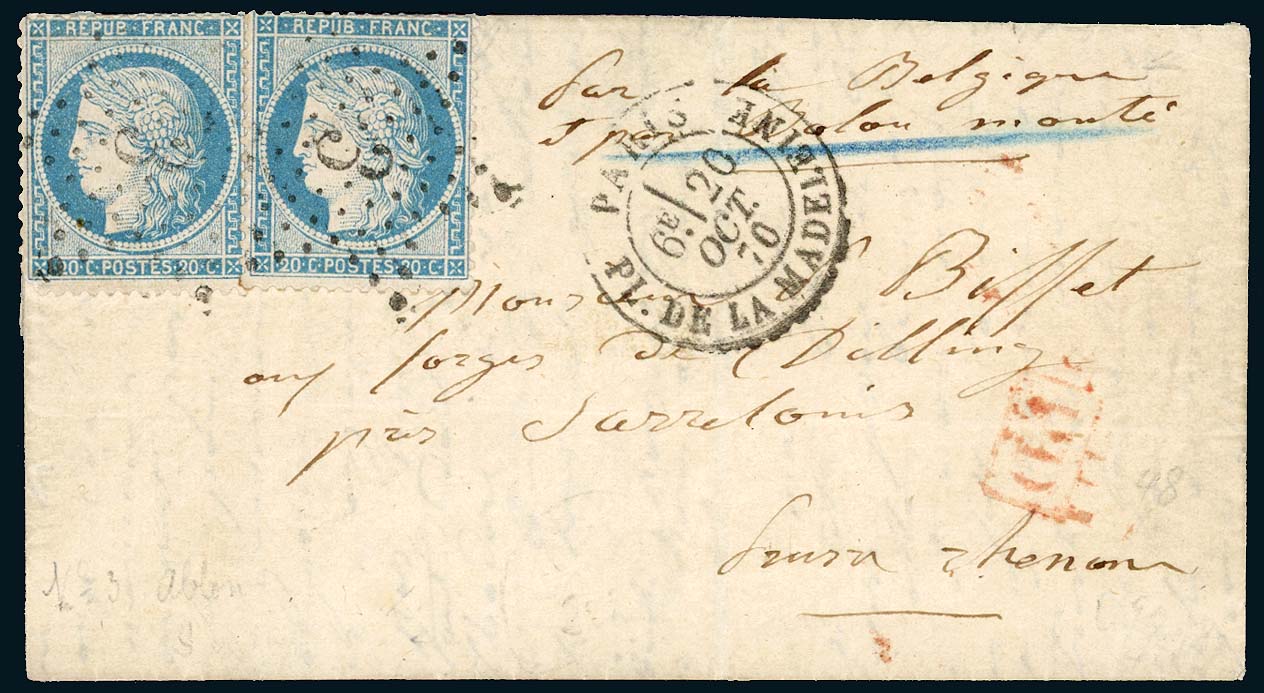 REPUB FRANC
20·C·POSTES·20·C·
REPUB·FRANC·
20·C·POSTES·20·C·
3
Par la Belgique
et par Balon monté
PARIS PL. DE LA MADELEINE
6E/20
OCT.
70
Monsieur Biffet
aux forges de Dilling
près Sarrelouis
Prusse rhenane
98
N° 3